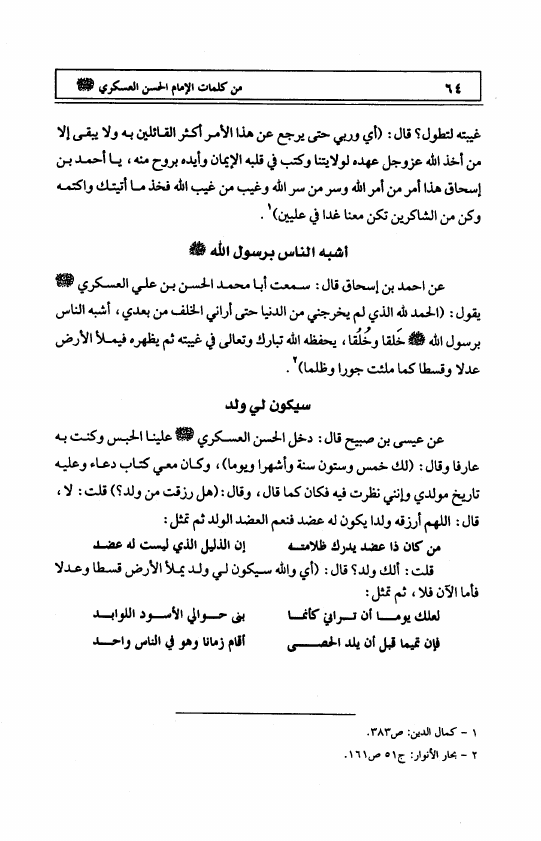 ٦٤
من كلمات الإمام الحسن العسكري
غيبته لتطول؟ قال: (أي وربي حتى يرجع عن هذا الأمر أكثر القائلين به ولا يبقى إلا
من أخذ الله عزوجل عهده لولايتنا وكتب في قلبه الإيمان وأيده بروح منه، يا أحمد بن
إسحاق هذا أمر من أمر الله وسر من سر الله وغيب من غيب الله فخذ ما أتيتك واكتمه
وكن من الشاكرين تكن معنا غدا في عليين)١.
أشبه الناس برسول الله
عن احمد بن إسحاق قال: سمعت أبا محمد الحسن بن علي العسكري
يقول: (الحمد لله الذي لم يخرجني من الدنيا حتى أراني الخلف من بعدي، أشبه الناس
برسول الله خَلقا وخُلُقا، يحفظه الله تبارك وتعالى في غيبته ثم يظهره فيملأ الأرض
عدلا وقسطا كما ملئت جورا وظلما)٢.
سيكون لي ولد
عن عيسى بن صبيح قال: دخل الحسن العسكري علينا الحبس وكنت به
عارفا وقال: (لك خمس وستون سنة وأشهرا ويوما)، وكان معي كتاب دعاء وعليه
تاريخ مولدي وإنني نظرت فيه فكان كما قال، وقال: (هل رزقت من ولد؟) قلت: لا،
قال: اللهم أرزقه ولدا يكون له عضد فنعم العضد الولد ثم تمثل:
من كان ذا عضد يدرك ظلامته إن الذليل الذي ليست له عضد
قلت: ألك ولد؟ قال: (أي والله سيكون لي ولد يملأ الأرض قسطا وعدلا
فأما الآن فلا، ثم تمثل:
لعلك يوما أن تراني كأنما بنى حوالي الأسود اللوابد
فإن تميما قبل أن يلد الحصى أقام زمانا وهو في الناس واحد
١ - كمال الدين: ص٣٨٣.
٢ - بحار الأنوار: ج٥١ ص١٦١.